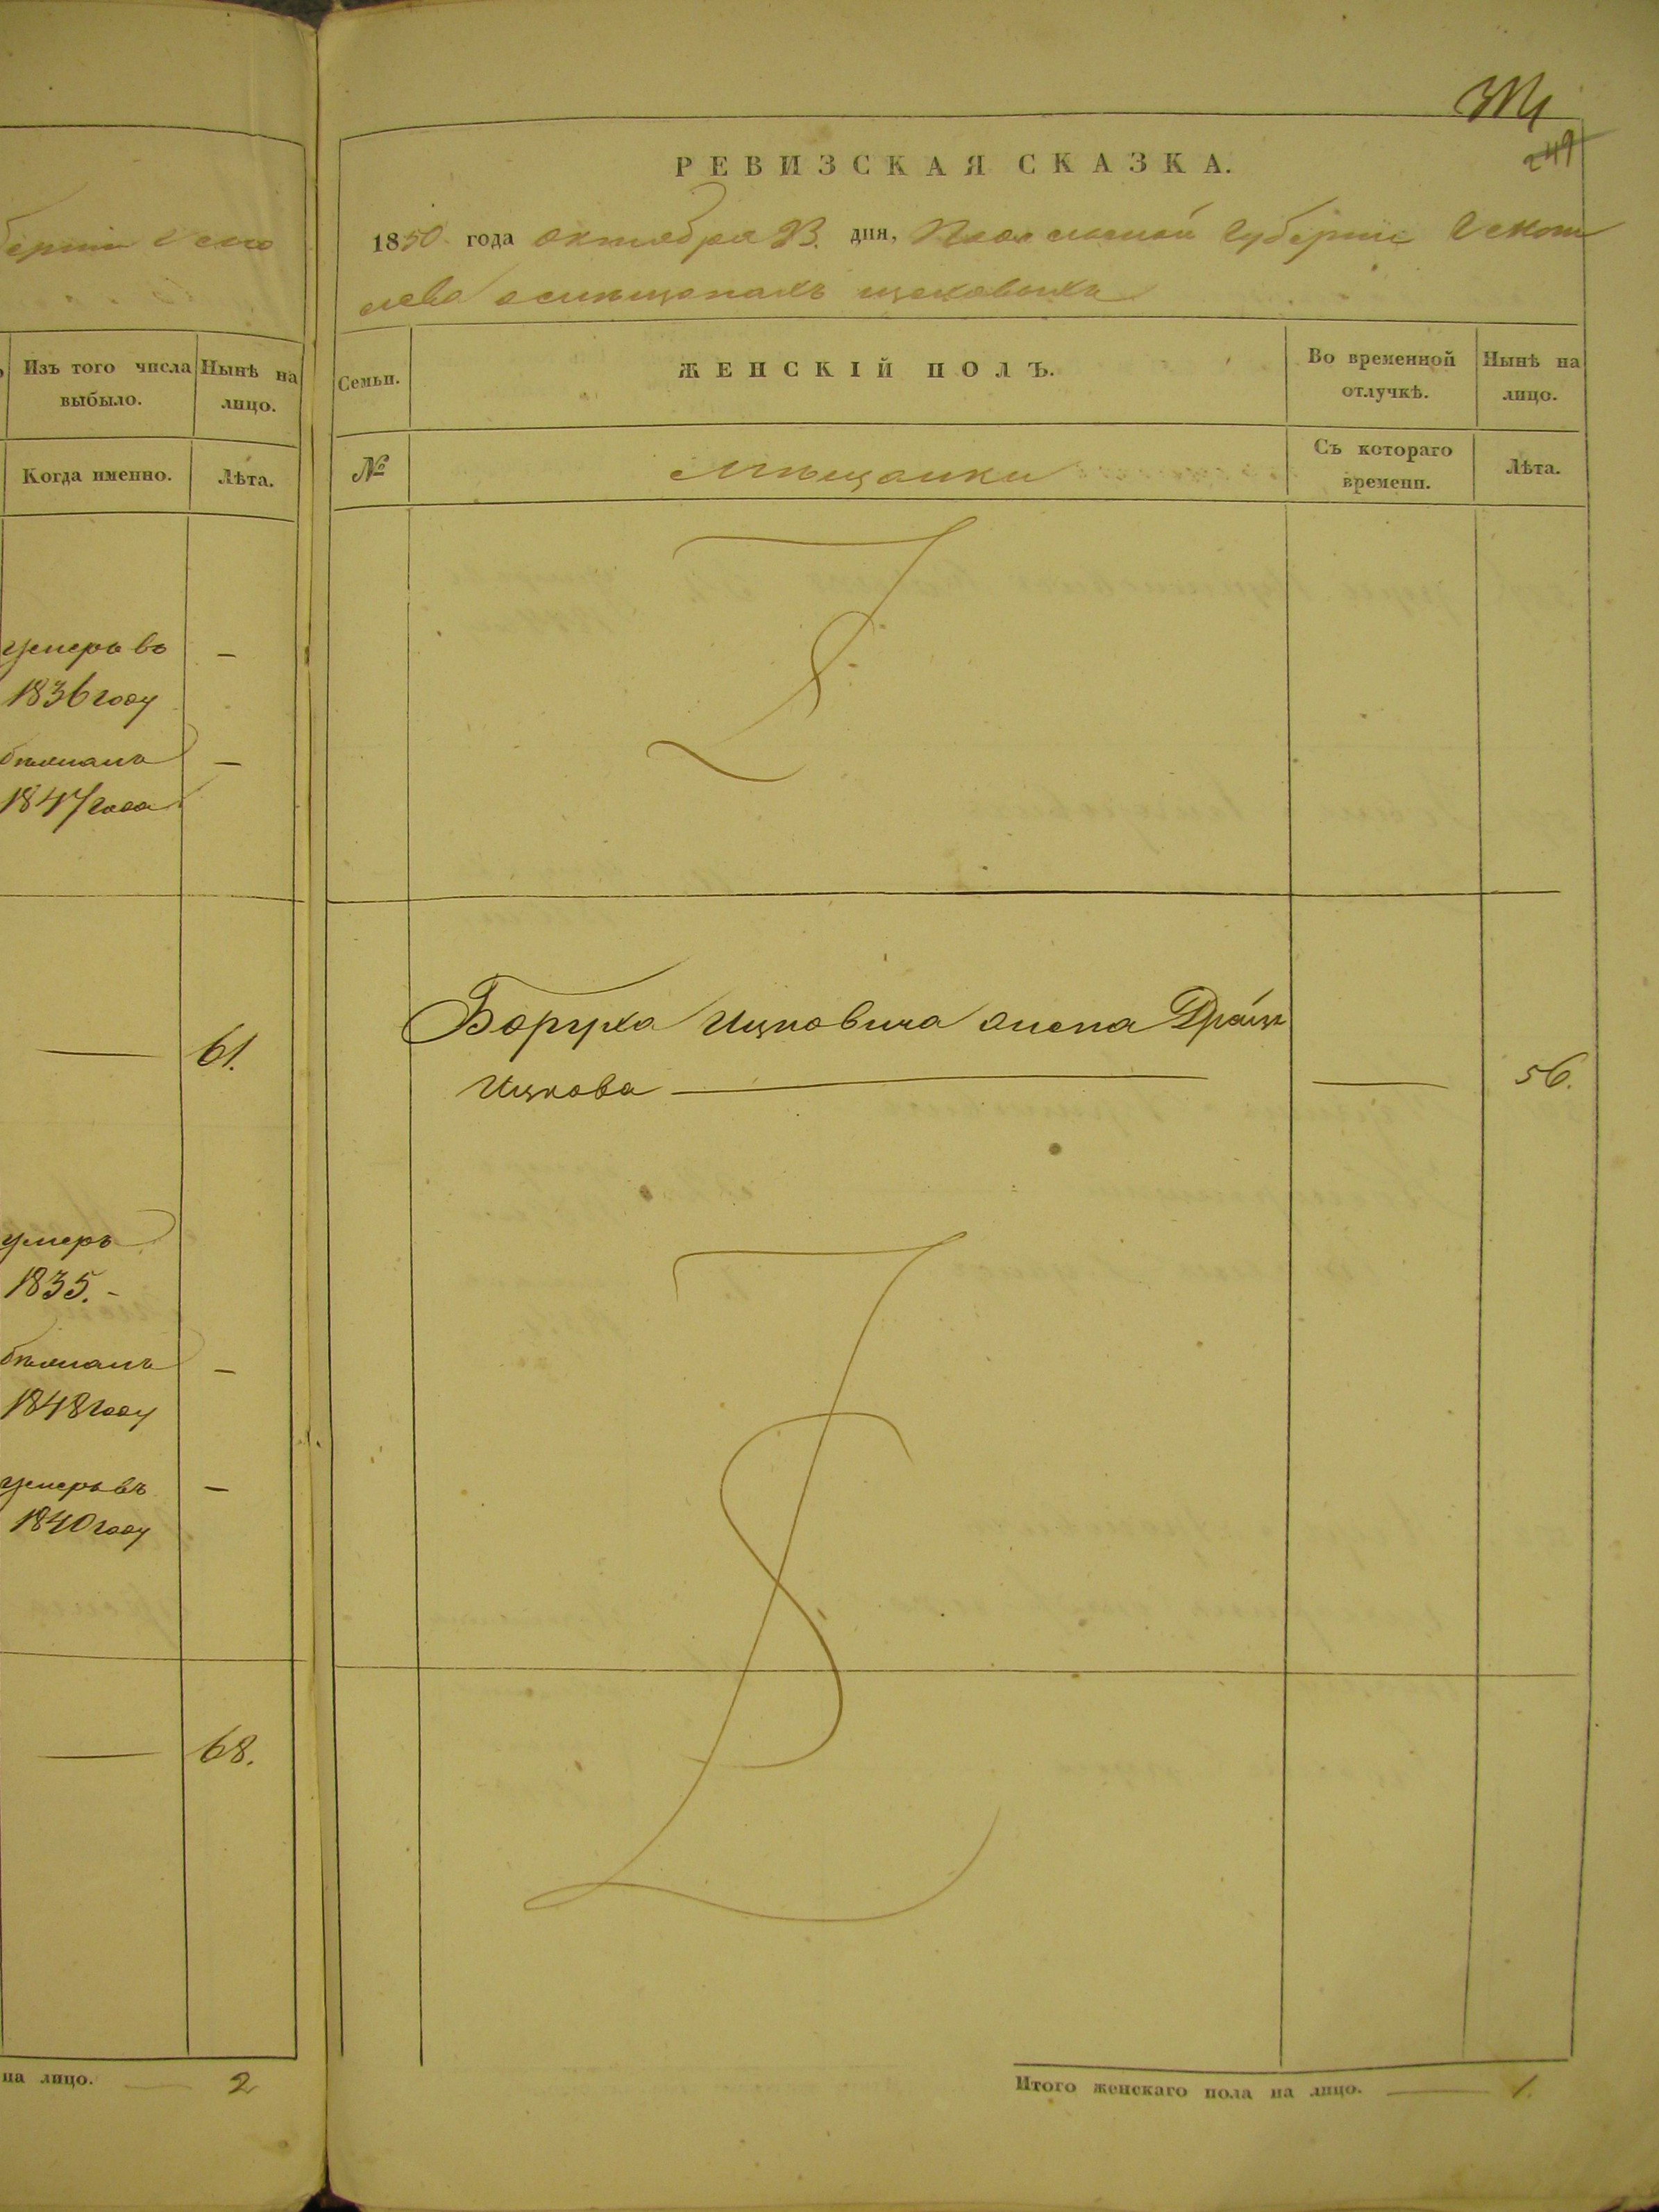 249
РЕВИЗСКАЯ СКАЗКА.
1850 года октября 23. дня, Губернiи
мѣщанахъ
Изъ того числа выбыло.
Нынѣ на лицо.
Когда именно.
Лѣта.
умеръ въ
1836 году
—
1847 года
—
— 61.
умеръ
1835.-
1848 году
—
умеръ въ
1840 году
—
— 68.
на лицо. — 2
Семьи.
ЖЕНСКІЙ ПОЛЪ.
Во временной отлучкѣ.
Нынѣ на лицо.
№
Мѣщанки
Съ котораго времени.
Лѣта.
Боруха Ицковича жена
Ицкова — — 56.
Итого женскаго пола на лицо. — 1.